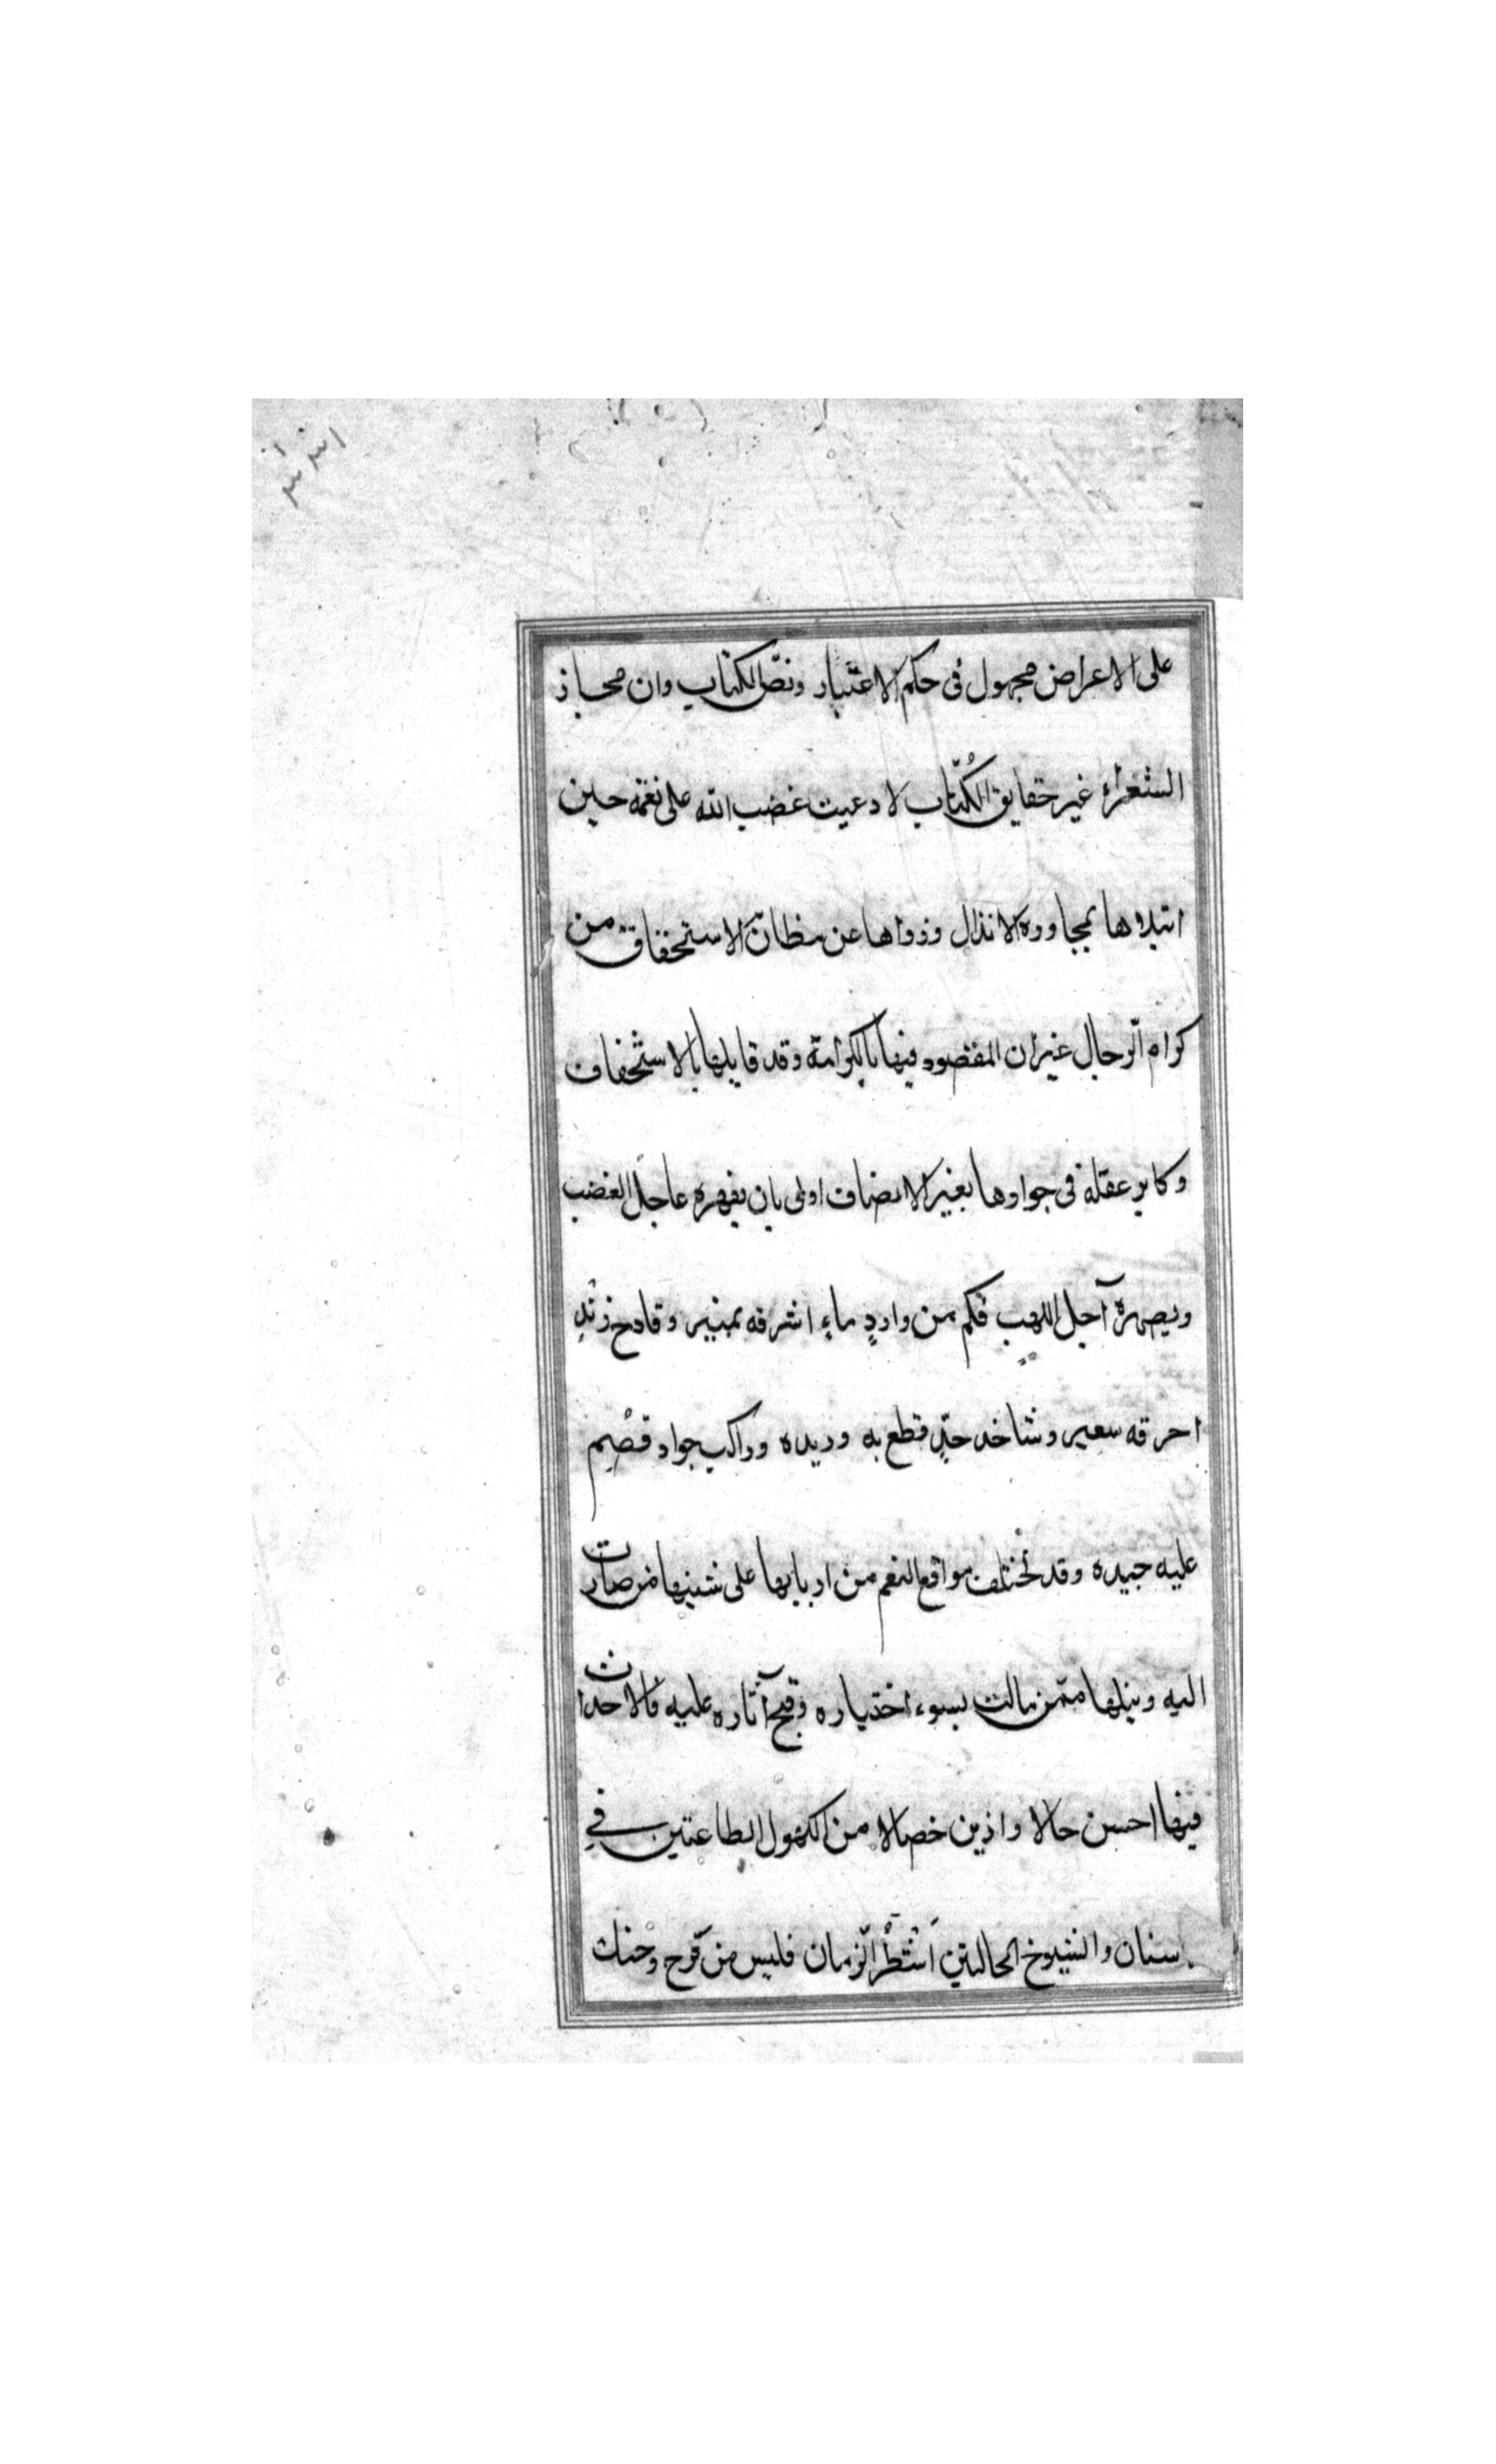 على الاعراض مجهول فى حكم الاعتبار ونصّ الكتاب وان مجاز
الشعراء غير حقايق الكُتّاب لا دعيت غضب الله على نعمه حين
ابتلاها بمجاوره الانذال وزواها عن مظانّ الاستحقاق من
كرام الرجال غير ان المقصود فيها بالكرامة وقد قابلها بالاستخفاف
وكابر عقله فى جوارها بغير الانصاف اولى بان يقهره عاجل الغضب
ويصهره آجل اللهب فكم من واردٍ ماءٍ اشرقه نمير وقادح زنْدٍ
احرقه سعير وشاحذ حدٍّ قطع به وريده وراكب جواد قصْم
عليه جيده وقد تختلف مواقع النعم من اربابها على نسبها من صارت
اليه ونيلها ممّن مالت بسوء اختياره وقبح آثاره عليه فالاحداث
فيها احسن حالا وازين خصالا من الكهول الطاعنين في
اسنان والشيوخ الحالبين اَشْطُر الزّمان فليس من قرح وحنك